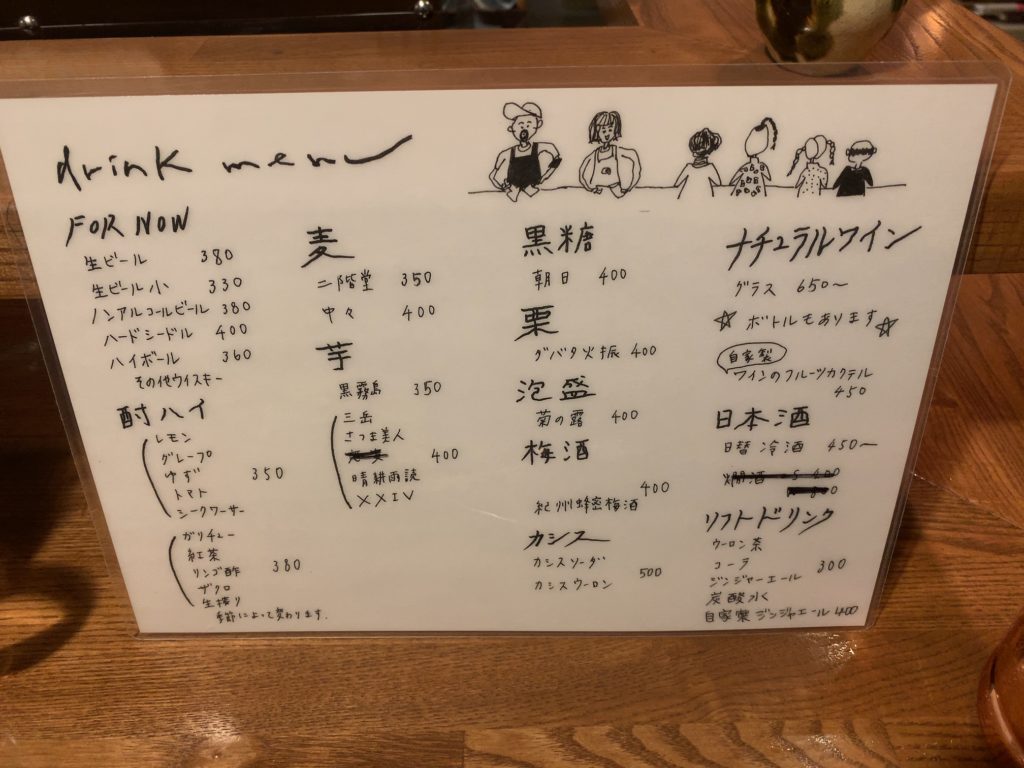 drink menu
FOR NOW
生ビール 380
生ビール小 330
ノンアルコールビール 380
ハードシードル 400
ハイボール 360
その他ウイスキー
酎ハイ
レモン
グレープ
ゆず 350
トマト
シークワーサー
ガリチュー
紅茶
リンゴ酢 380
ザクロ
生搾り
季節によって変わります.
麦
二階堂 350
中々 400
芋
黒霧島 350
三岳
さつま美人
400
晴耕雨読
XXIV
黒糖
朝日 400
栗
ダバダ火振 400
泡盛
菊の露 400
梅酒
400
紀州蜂蜜梅酒
カシス
カシスソーダ
500
カシスウーロン
ナチュラルワイン
グラス 650〜
☆ボトルもあります☆
自家製
ワインのフルーツカクテル
450
日本酒
日替冷酒 450〜
燗酒
ソフトドリンク
ウーロン茶
コーラ 300
ジンジャーエール
炭酸水
自家製ジンジャエール 400